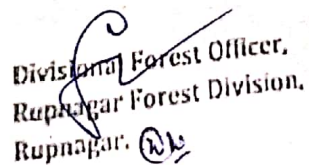 Divisional Forest Officer,
Rupnagar Forest Division,
Rupnagar.